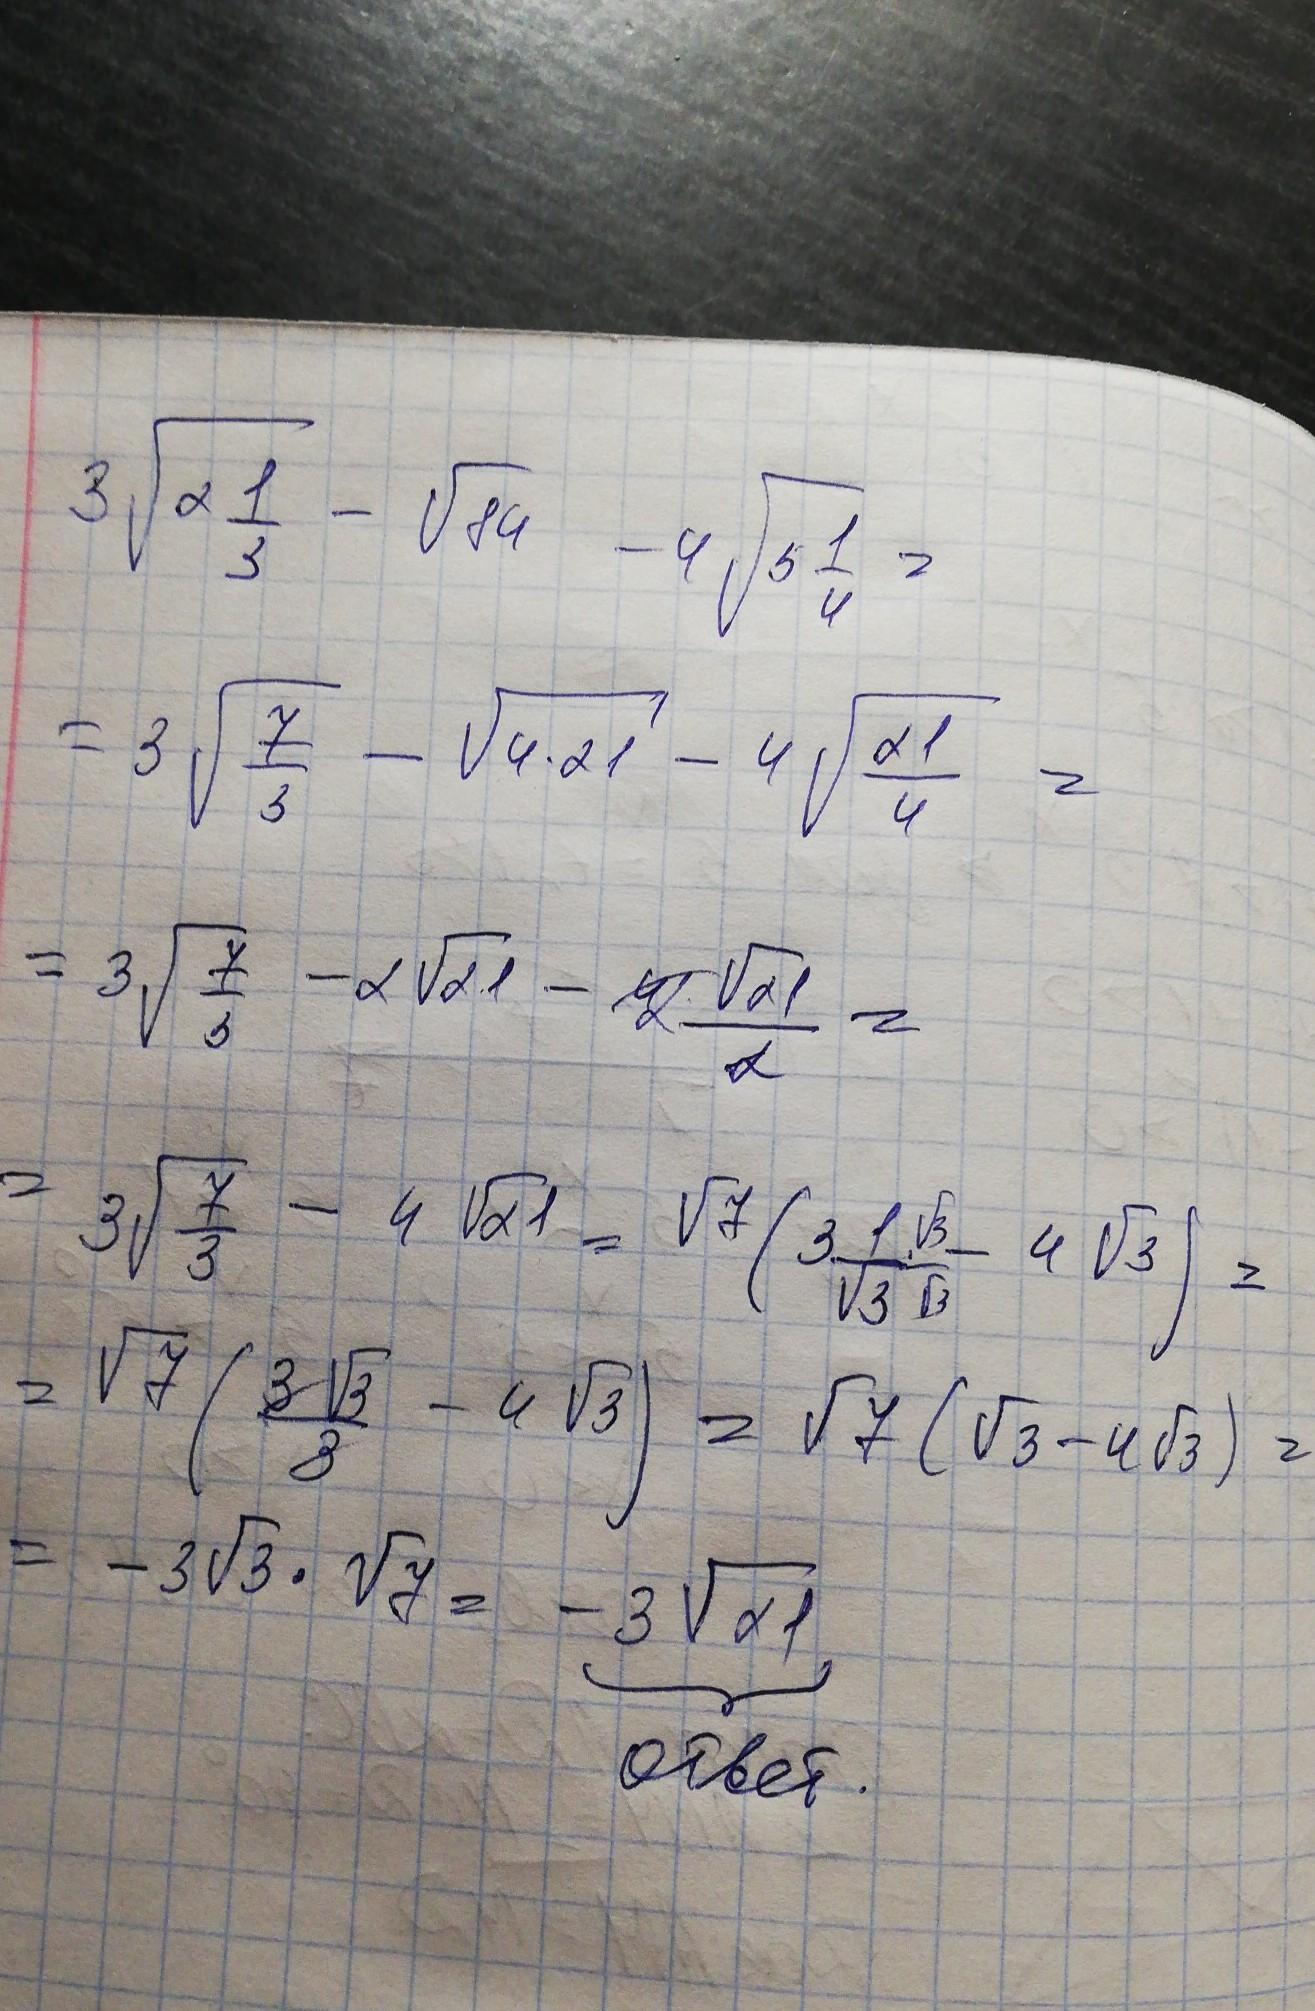 3√(2 1/3) − √84 − 4√(5 1/4) =
= 3√(7/3) − √(4·21) − 4√(21/4) =
= 3√(7/3) − 2√21 − 4·√21/2 =
= 3√(7/3) − 4√21 = √7(3·1·√3/(√3·√3) − 4√3) =
= √7(3√3/3 − 4√3) = √7(√3 − 4√3) =
= −3√3 · √7 = −3√21
ответ.